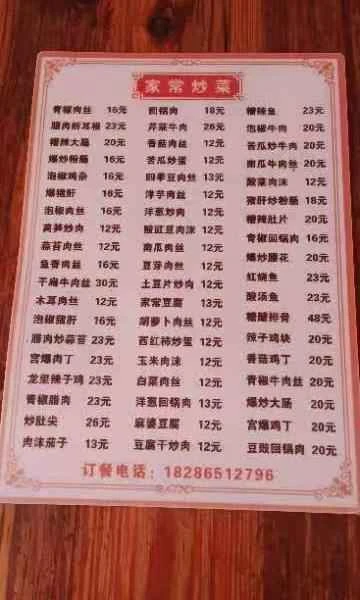 家常炒菜
青椒肉丝 16元 回锅肉 18元 糟辣鱼 23元
腊肉折耳根 23元 芹菜牛肉 26元 泡椒牛肉 20元
糟辣大肠 20元 香菇肉丝 12元 苦瓜炒牛肉 20元
爆炒粉肠 16元 苦瓜炒蛋 12元 南瓜牛肉丝 20元
泡椒鸡杂 16元 四季豆肉丝 13元 酸菜肉沫 12元
爆猪肝 16元 洋芋肉丝 12元 猪肝炒粉肠 18元
泡椒肉丝 16元 洋葱炒肉 12元 糟辣肚片 20元
莴笋炒肉 12元 酸豇豆肉沫 12元 青椒回锅肉 16元
蒜苔肉丝 12元 南瓜肉丝 12元 爆炒腰花 20元
鱼香肉丝 16元 豆芽肉丝 12元 红烧鱼 23元
干扁牛肉丝 30元 土豆片炒肉 12元 酸汤鱼 23元
木耳肉丝 12元 家常豆腐 13元 糟醋排骨 48元
泡椒猪肝 16元 胡萝卜肉丝 12元 辣子鸡块 20元
腊肉炒蒜苔 23元 西红柿炒蛋 12元 香菇鸡丁 20元
宫爆肉丁 23元 玉米肉沫 12元 青椒牛肉丝 20元
龙里辣子鸡 23元 白菜肉丝 12元 爆炒大肠 20元
青椒腊肉 23元 洋葱回锅肉 13元 宫爆鸡丁 20元
炒肚尖 26元 麻婆豆腐 12元 豆豉回锅肉 20元
肉沫茄子 13元 豆腐干炒肉 12元
订餐电话：18286512796